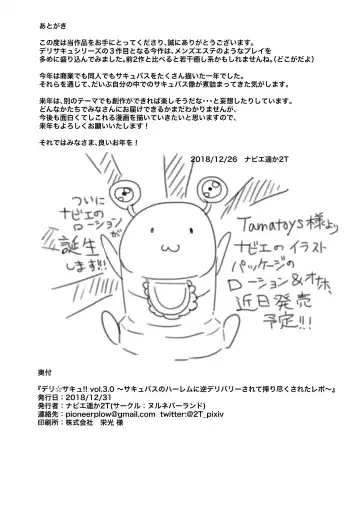 あとがき
この度は当作品をお手にとってくださり、誠にありがとうございます。
デリサキュシリーズの３作目となる今作は、メンズエステのようなプレイを
多めに盛り込んでみました。前2作と比べると若干癒し系かもしれませんね。（どこがだよ）
今年は商業でも同人でもサキュバスをたくさん描いた一年でした。
それらを通じて、だいぶ自分の中でのサキュバス像が煮詰まってきた気がします。
来年は、別のテーマでも創作ができれば楽しそうだな・・・と妄想したりしています。
どんなかたちでみなさんにお届けできるかまだわかりませんが、
今後も面白くてしこれる漫画を描いていきたいと思いますので、
来年もよろしくお願いいたします！
それではみなさま、良いお年を！
2018/12/26　ナビエ遥か2T
ついに
ナビエの
ローションが
誕生
します!!!
Tamatoys様より
ナビエのイラスト
パッケージの
ローション&オナホ、
近日発売
予定!!!
奥付
『デリ☆サキュ!! vol.3.0 ～サキュバスのハーレムに逆デリバリーされて搾り尽くされたレポ～』
発行日：2018/12/31
発行者：ナビエ遥か2T(サークル：ヌルネバーランド)
連絡先：pioneerplow@gmail.com　twitter:@2T_pixiv
印刷所：株式会社　栄光 様